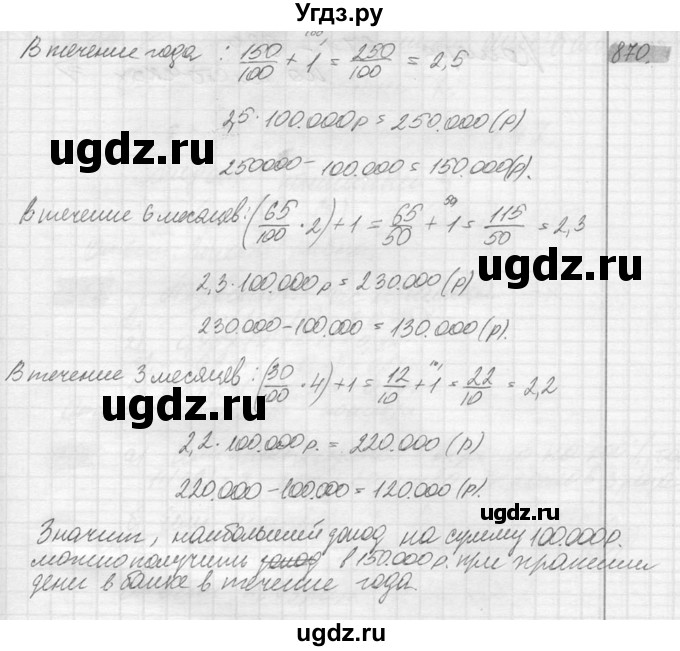 Угдз.ру
В течение года : 150/100 + 1 = 250/100 = 2,5
870.
2,5 · 100.000р = 250.000 (р)
ugdz.ru
250000 – 100.000 = 150.000(р).
В течение 6 месяцев: (65/100 · 2) + 1 = 65/50 + 1 = 115/50 = 2,3
ugdz.ru
2,3 · 100.000р = 230.000 (р)
230.000 – 100.000 = 130.000 (р).
В течение 3 месяцев : (30/100 · 4) + 1 = 12/10 + 1 = 22/10 = 2,2
ugdz.ru
2,2 · 100.000р. = 220.000 (р)
220.000 – 100.000 = 120.000 (р).
Значит, наибольший доход на сумму 100.000р.
можно получить доход в 150.000 р. при хранении
дени в банке в течение года.
ugdz.ru